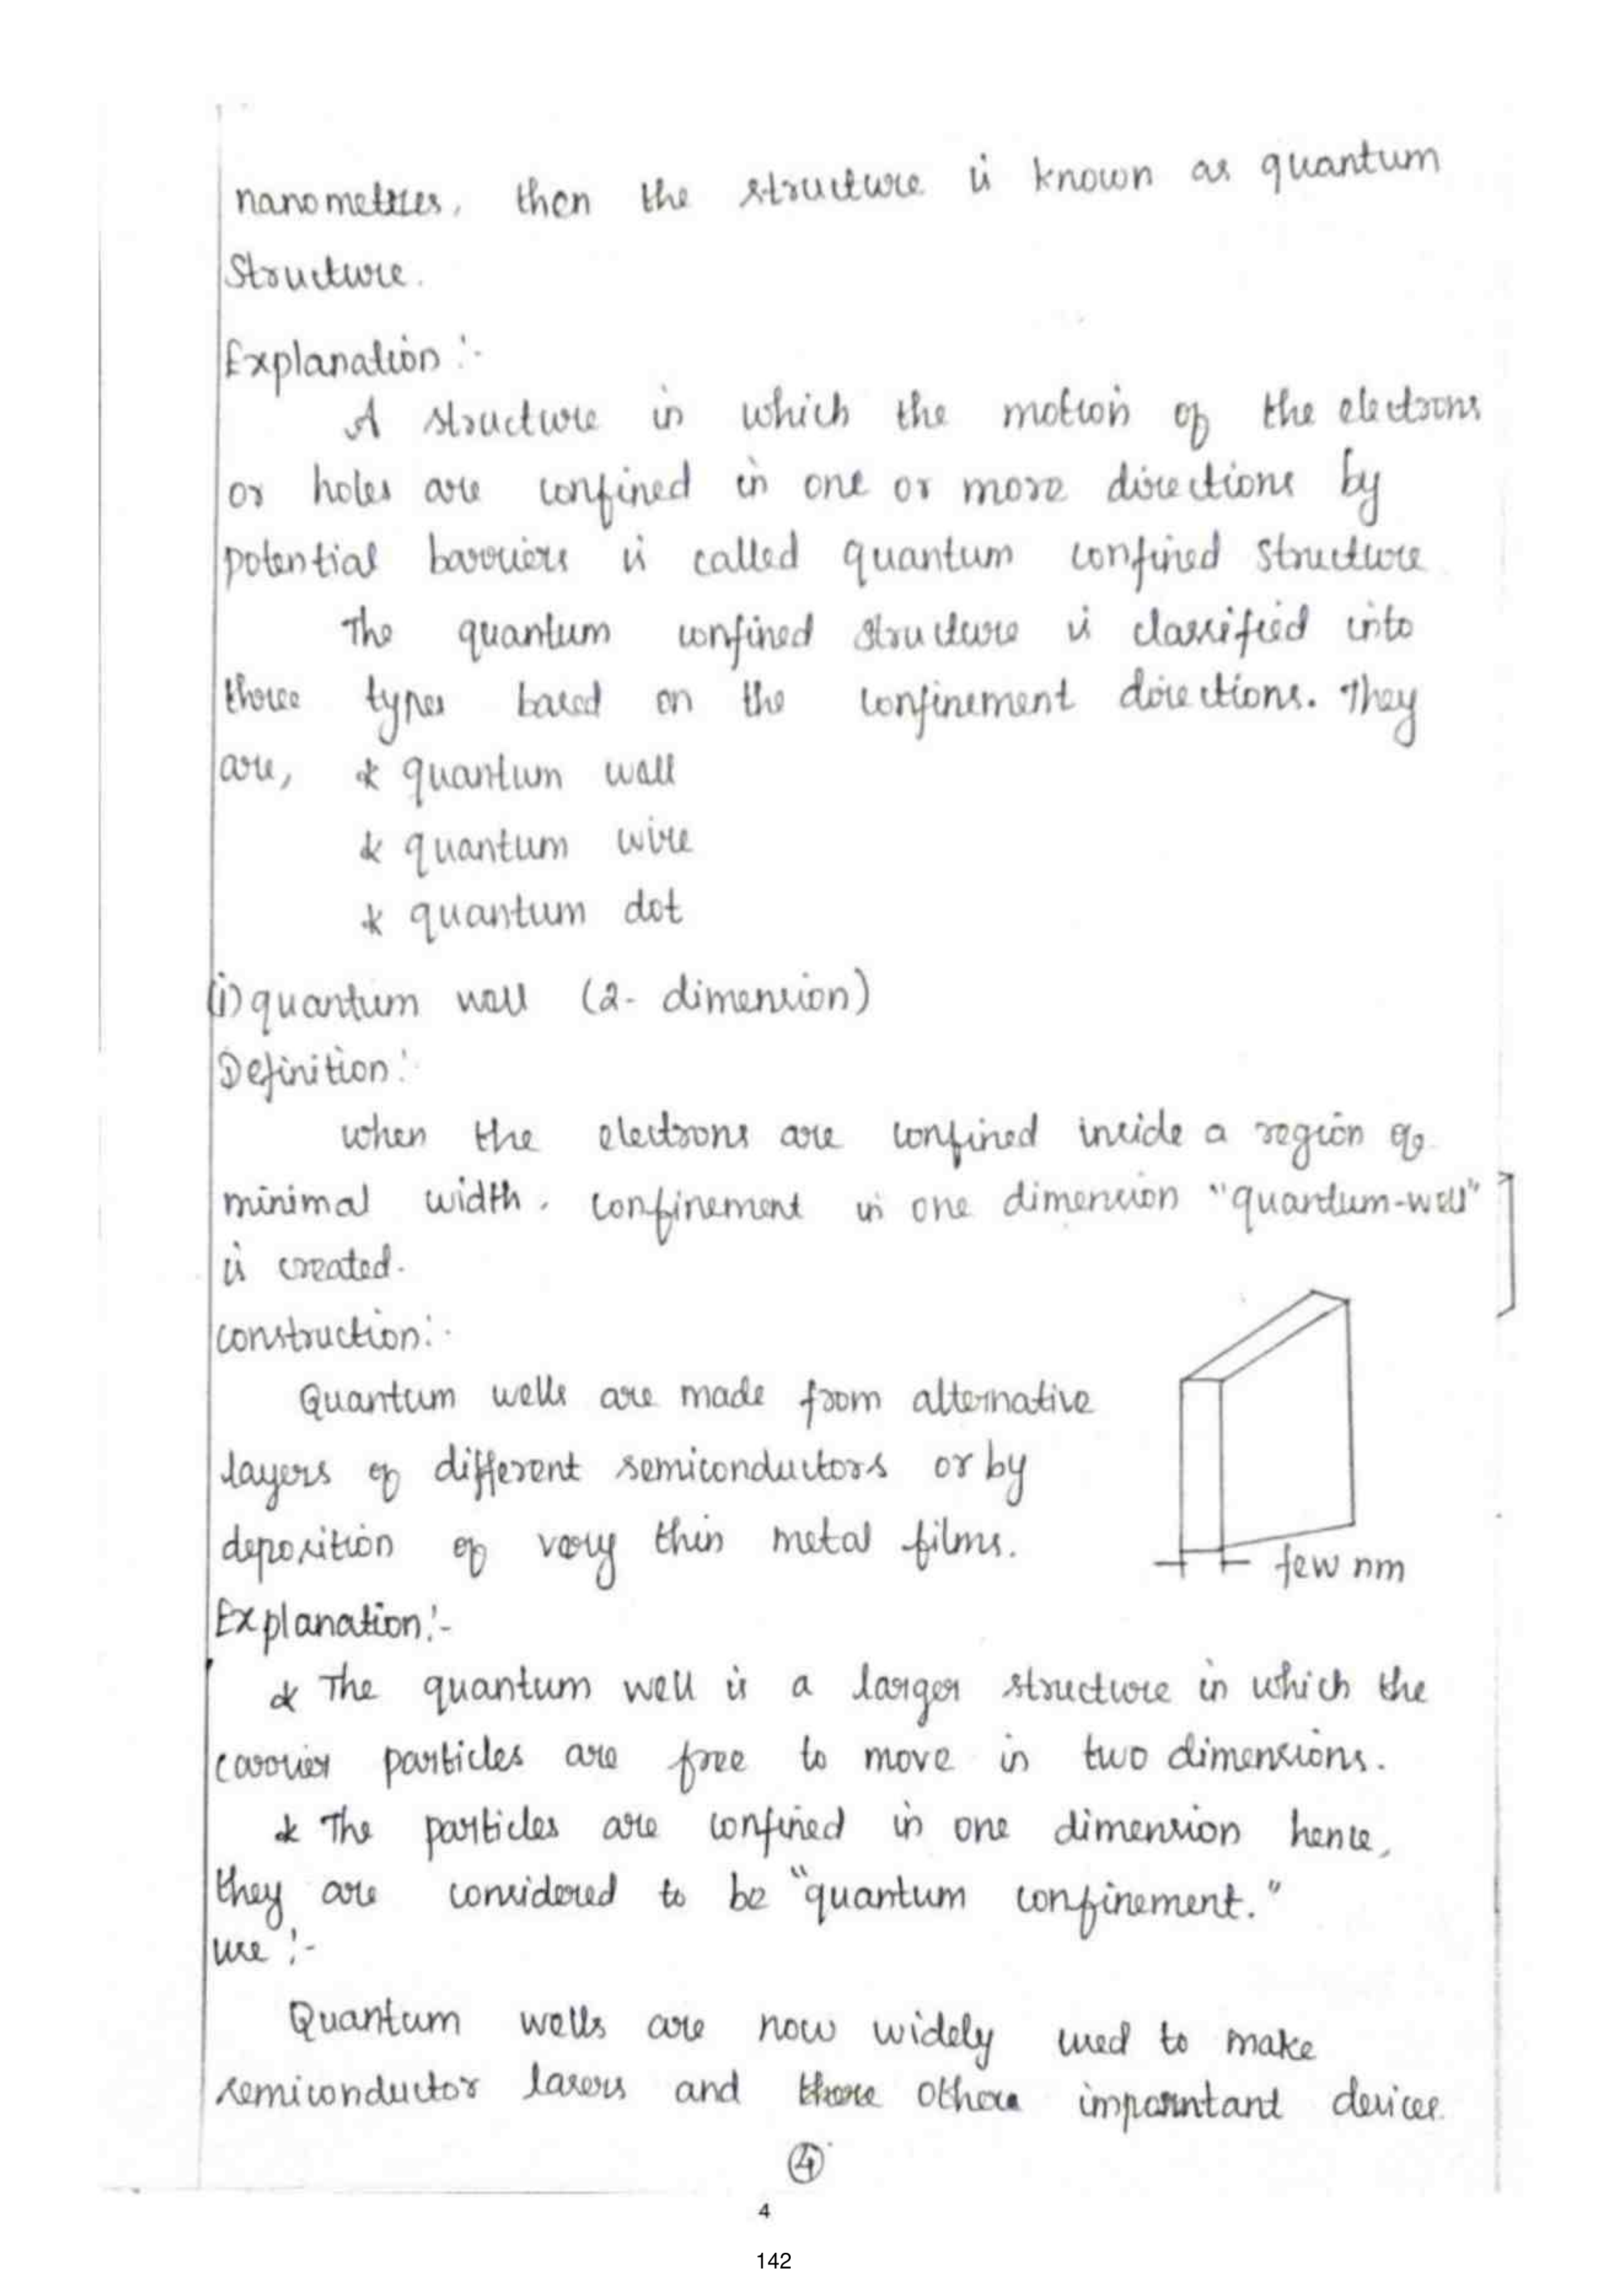 nanometres, then the structure is known as quantum
Structure.
Explanation :-
A structure in which the motion of the electrons
or holes are confined in one or more directions by
potential barriers is called quantum confined structure
The quantum confined structure is classified into
three types based on the confinement directions. They
are, * quantum wall
* quantum wire
* quantum dot
(i) quantum well (2- dimension)
Definition:
when the electrons are confined inside a region of
minimal width, confinement in one dimension "quantum-well"
is created.
construction:-
Quantum wells are made from alternative
layers of different semiconductors or by
deposition of very thin metal films.
few nm
Explanation:-
* The quantum well is a larger structure in which the
carrier particles are free to move in two dimensions.
* The particles are confined in one dimension hence,
they are considered to be "quantum confinement."
use :-
Quantum wells are now widely used to make
semiconductor lasers and there other imporntant devices.
4
4
142